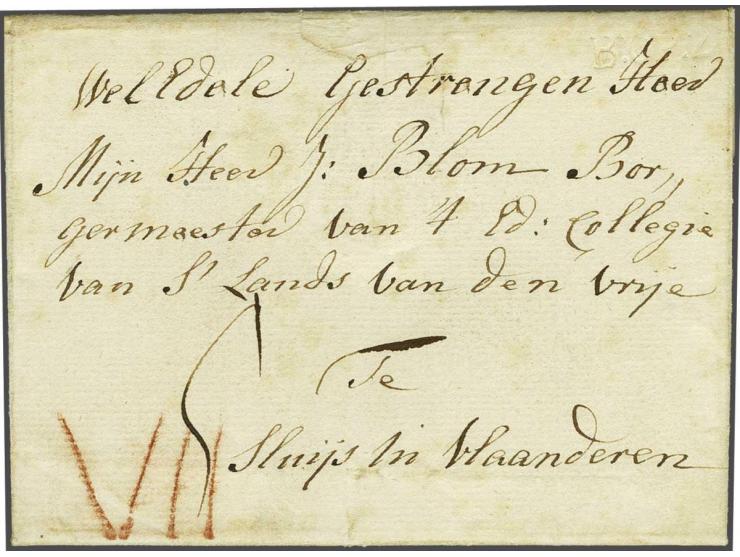 WelEdele Gestrengen Heer
Mijn Heer J: Blom Bor,,
germeester van 't Ed: Collegie
van S' Lands van den vrije
Te
Sluijs in Vlaanderen
VII